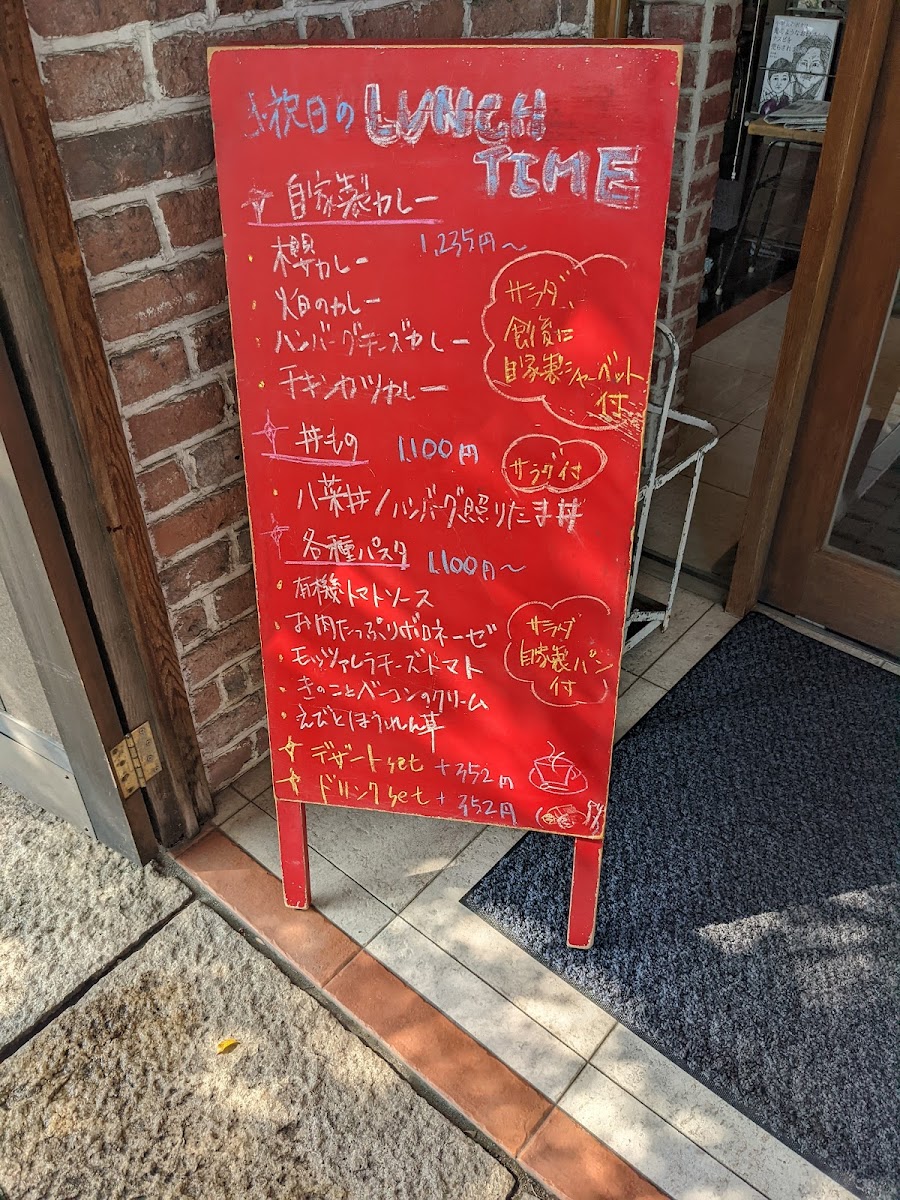 祝日の LUNCH
TIME
自家製カレー
1,235円～
櫻カレー
畑のカレー
ハンバーグチーズカレー
チキンカツカレー
サラダ、
創後に
自家製シャーベット
付
丼もの 1,100円
サラダ付
八菜丼/ハンバーグ照りたま丼
各種パスタ 1,100円～
有機トマトソース
お肉たっぷりボロネーゼ
モッツァレラチーズトマト
きのことベーコンのクリーム
えびとほうれん草
サラダ
自家製パン
付
デザートset +352円
ドリンクset + 352円